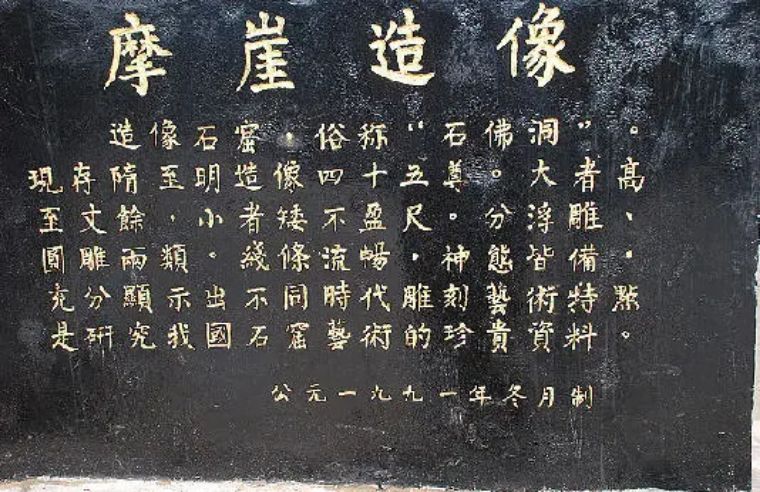 摩崖造像
造像石窟，俗称“石佛洞”。
現存隋至明造像四十五尊。大者高
至丈餘，小者矮不盈尺。分浮雕、
圓雕兩類。綫條流暢，神態皆備，
充分顯示出不同時代雕刻藝術特點。
是研究我國石窟藝術的珍貴資料。
公元一九九一年冬月制